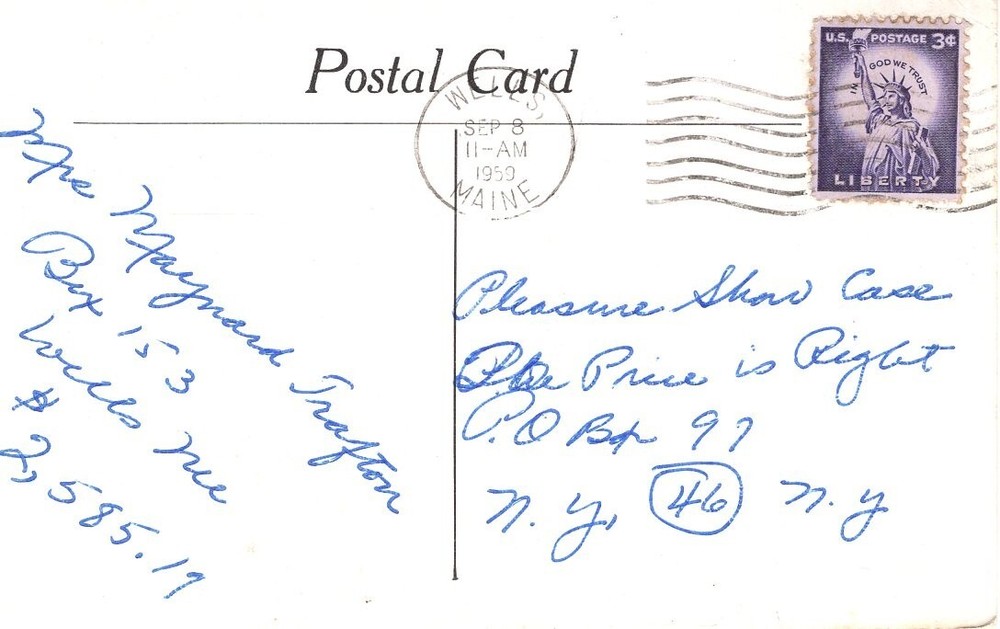 Postal Card
WELLS
SEP 8
11-AM
1959
MAINE
U.S. POSTAGE 3¢
IN GOD WE TRUST
LIBERTY
Mrs Maynard Trafton
Box 153
Wells Me
$
2,585.19
Pleasure Show Case
The Price is Right
P.O Bx 97
N. Y, 46 N. Y